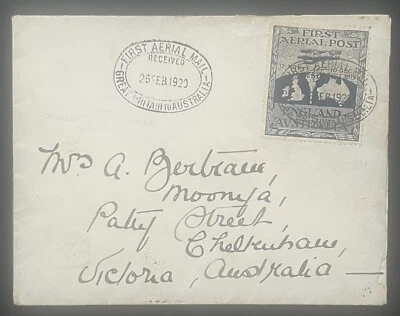 FIRST AERIAL MAIL
RECEIVED
26 FEB 1920
GREAT BRITAIN TO AUSTRALIA
FIRST
AERIAL POST
ENGLAND
AUSTRALIA
FEB 192
Mrs A. Bertram,
Moonya,
Paty Street,
Cheltenham,
Victoria, Australia —